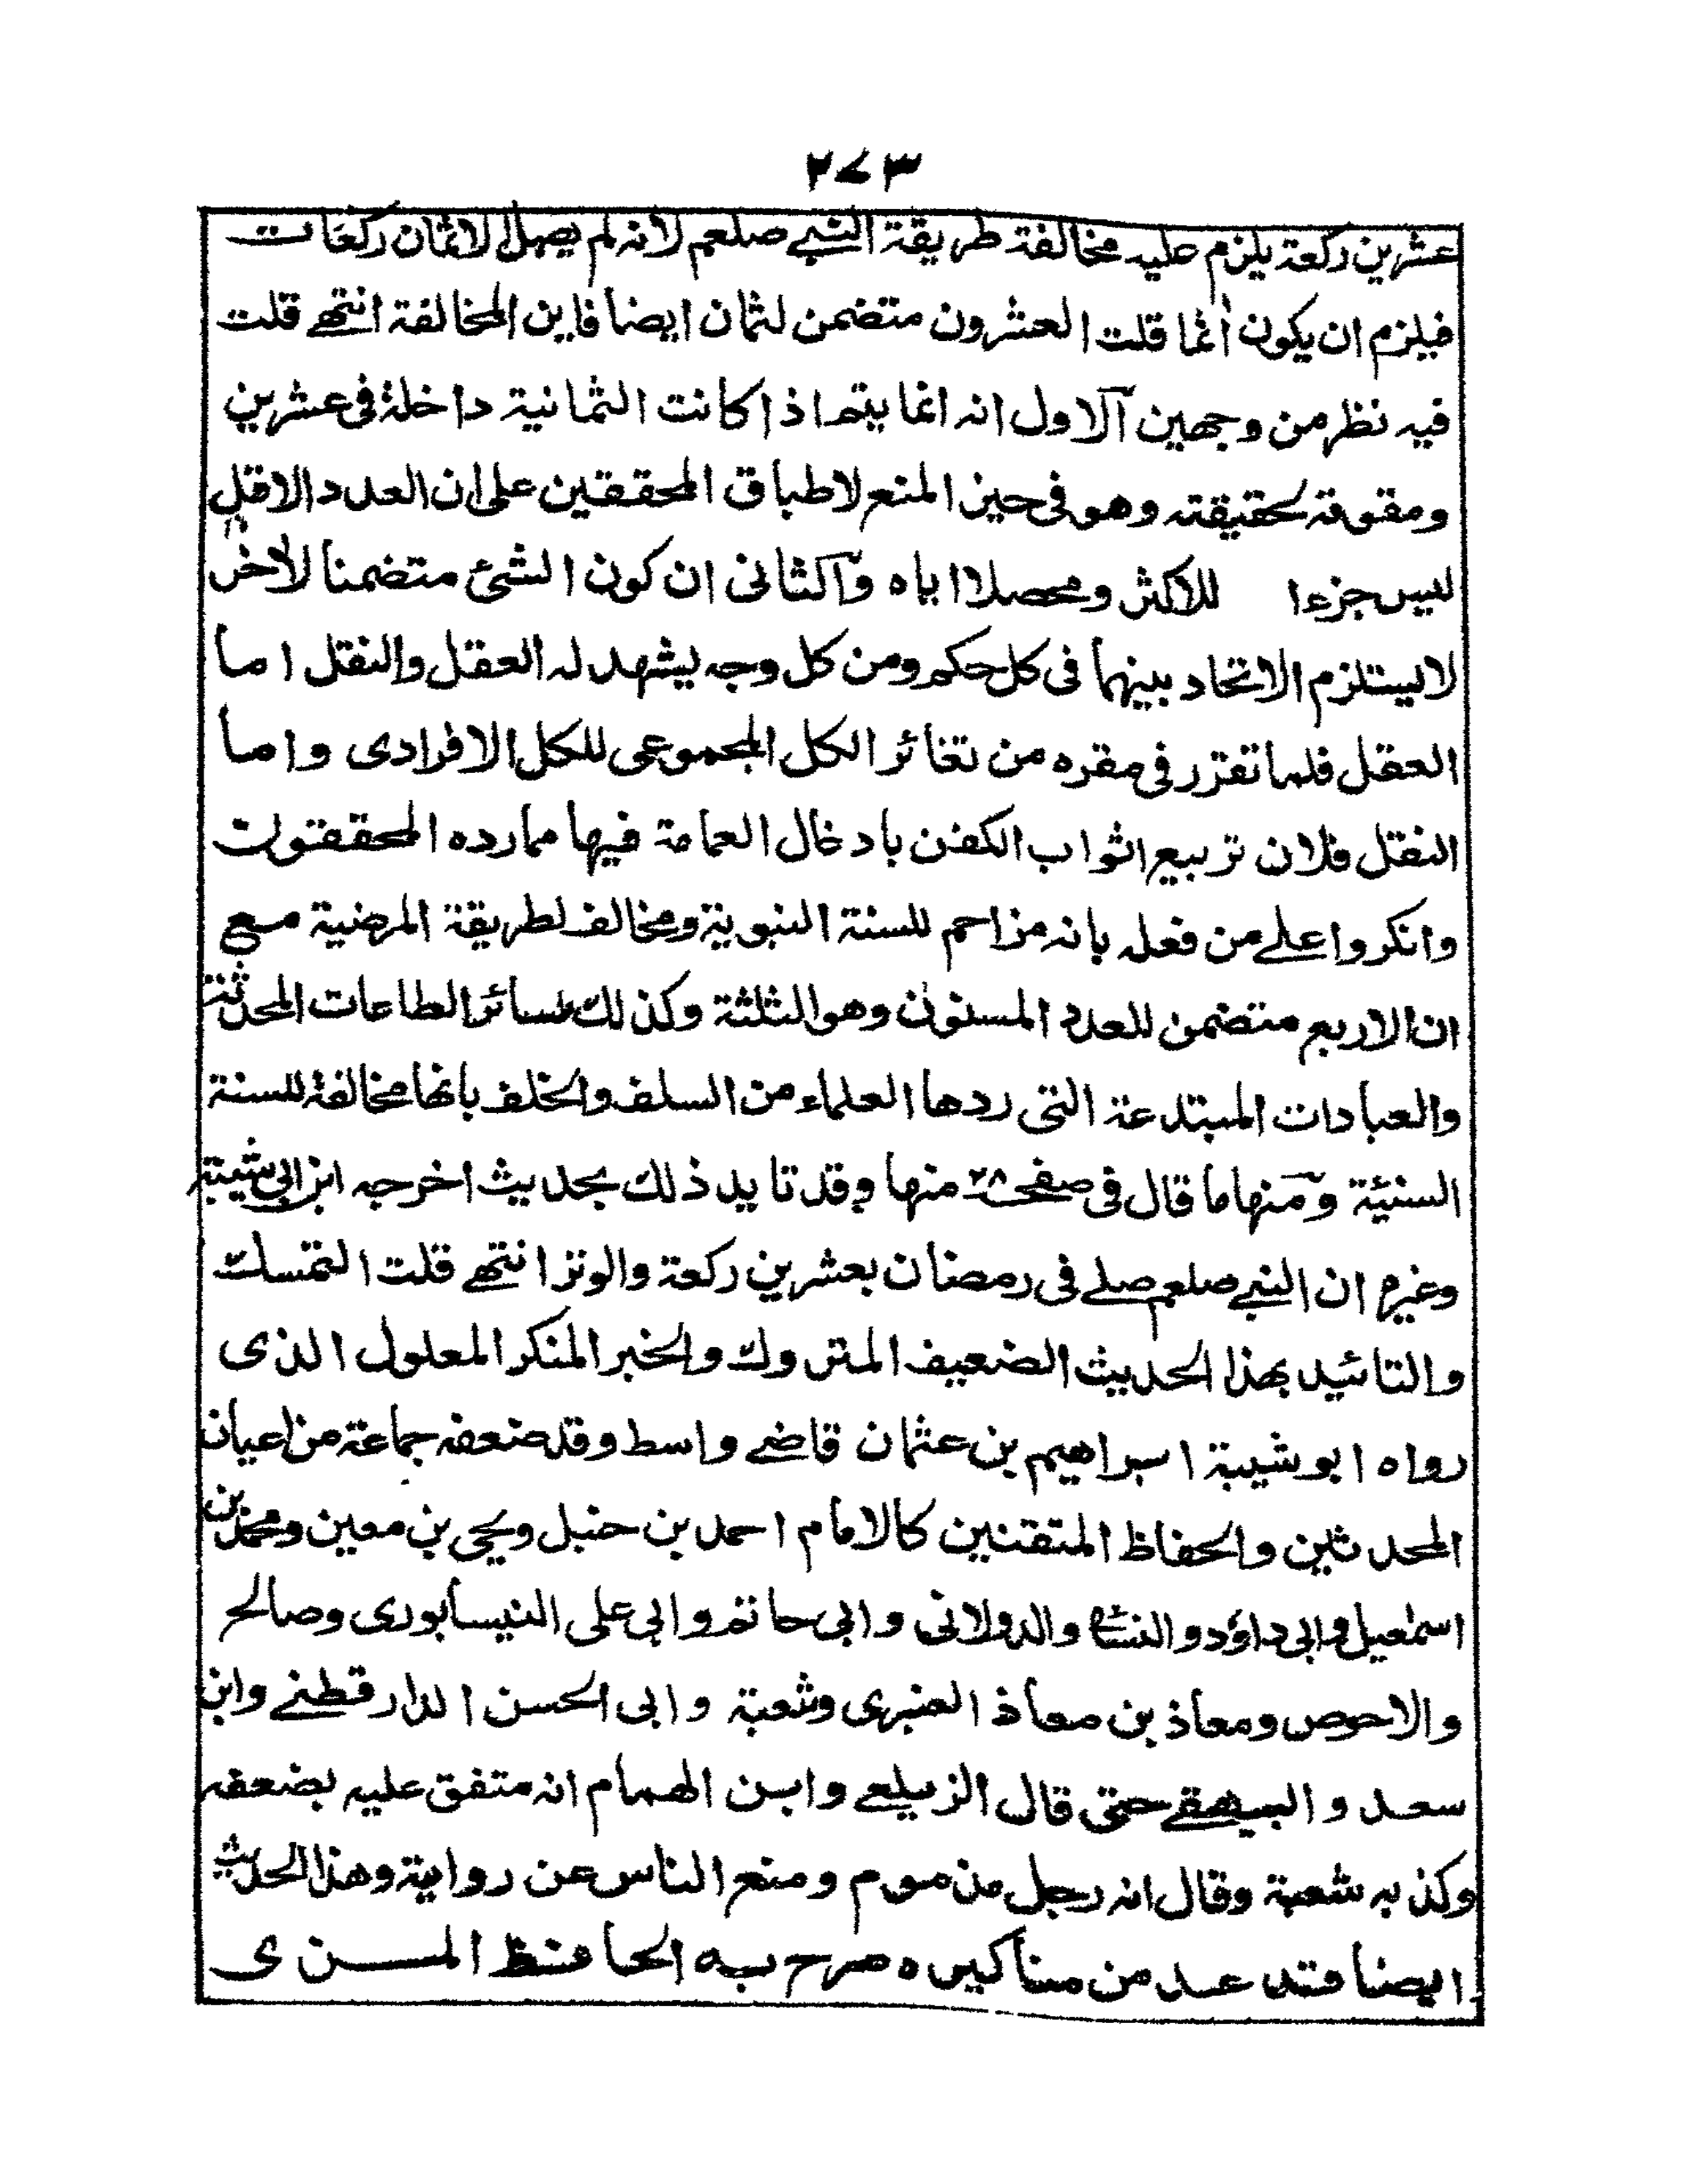 ٢٧٣
عشرين ركعة يلزم عليه مخالفة طريقة النبي صلعم لانه لم يصل الا ثمان ركعات
فيلزم ان يكون اثما قلت العشرون متضمن لثمان ايضا فاين المخالفة انتهى قلت
فيه نظر من وجهين آلاول انه انما يتم اذا كانت الثمانية داخلة في عشرين
ومقومة لحقيقته وهو في حيز المنع لاطباق المحققين على ان العدد الاقل
ليس جزءا للاكثر ومحصلا اياه وآلثاني ان كون الشئ متضمنا لآخر
لا يستلزم الاتحاد بينهما في كل حكم ومن كل وجه يشهد له العقل والنقل اما
العقل فلما تقرر في مقره من تغائر الكل المجموعي للكل الافرادي واما
النقل فلان تربيع اثواب الكفن بادخال العمامة فيها مما رده المحققون
وانكروا على من فعله بانه مزاحم للسنة النبوية ومخالف لطريقة المرضية مع
ان الاربع متضمن للعدد المسنون وهو الثلثة وكذلك سائر الطاعات المحدثة
والعبادات المبتدعة التي ردها العلماء من السلف والخلف بانها مخالفة للسنة
السنيّة ومنها ما قال في صفحه ٢٨ منها وقد تايد ذلك بحديث اخرجه ابن ابي شيبة
وغيره ان النبي صلعم صلى في رمضان بعشرين ركعة والوتر انتهى قلت التمسك
والتائيد بهذا الحديث الضعيف المتروك والخبر المنكر المعلول الذي
رواه ابو شيبة ابراهيم بن عثمان قاضي واسط وقد ضعفه جماعة من اعيان
المحدثين والحفاظ المتقنين كالامام احمد بن حنبل ويحيى بن معين ومحمد بن
اسمعيل وابي داؤد والنسائي والدولابي وابي حاتم وابي على النيسابوري وصالح
والاحوص ومعاذ بن معاذ العنبري وشعبة وابي الحسن الدارقطني وابن
سعد والبيهقي حتى قال الزيلعي وابن الهمام انه متفق عليه بضعفه
وكذبه شعبة وقال انه رجل مذموم ومنع الناس عن رواية وهذا الحديث
ايضا قد عد من مناكيره صرح به الحافظ المزي